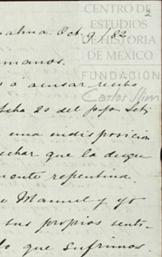 2
CENTRO DE
ESTUDIOS
DE HISTORIA
DE MEXICO
FUNDACIÓN
Carlos Slim
Oct 9/82
manos.
a acusar recibo
fecha 20 del ppo Set
una indisposicion
char que la de que
repentina
Manuel y yo
sus propios senti-
lo que sufrimos